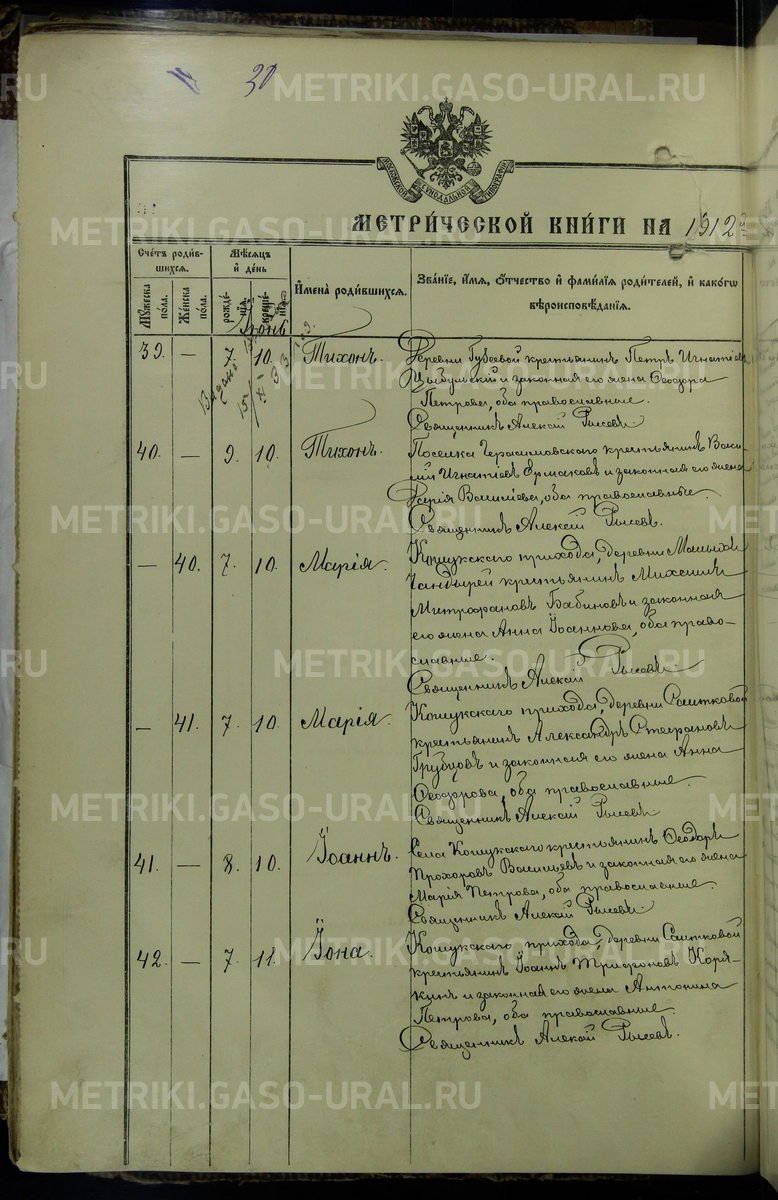 30
МОСКОВСКОЙ СѴНОДАЛЬНОЙ ТИПОГРАФІИ
МЕТРИ́ЧЕСКОЙ КНИ́ГИ НА 1912
Сче́тъ роди́в-
шихся.
Мѣ́сяцъ
и де́нь
Имена̀ роди́вшихся.
Зва́ніе, и́мя, о́тчество и фами́лія роди́телей, и како́гѡ
вѣроисповѣ́данія.
Мꙋ́жеска по́ла.
Же́нска по́ла.
рожде́нія.
креще́нія.
Іюнь
39. — 7. 10. Тихонъ.
Деревни Губевой крестьянинъ Петръ Игнатіевъ
Цыбульскій и законная его жена Ѳеодора
Петрова, оба православные.
Священникъ Алексій Рысевъ.
Выдано
40. — 9. 10. Тихонъ.
Поселка Герасимовскаго крестьянинъ Васи-
лій Игнатіевъ Ермаковъ и законная его жена
Дарія Василіева, оба православные.
Священникъ Алексій Рысевъ.
— 40. 7. 10. Марія.
Кошукскаго прихода, деревни Малыхъ
Чандырей крестьянинъ Михаилъ
Митрофановъ Бабиновъ и законная
его жена Анна Іоаннова, оба право-
славные.
Священникъ Алексій Рысевъ.
— 41. 7. 10. Марія.
Кошукскаго прихода, деревни Саитковой
крестьянинъ Александръ Стефановъ
Грубцовъ и законная его жена Анна
Ѳеодорова, оба православные.
Священникъ Алексій Рысевъ.
41. — 8. 10. Іоаннъ.
Села Кошукскаго крестьянинъ Ѳеодоръ
Прохоровъ Васильевъ и законная его жена
Марія Петрова, оба православные.
Священникъ Алексій Рысевъ.
42. — 7. 11. Іона.
Кошукскаго прихода, деревни Саитковой
крестьянинъ Іоаннъ Трифоновъ Коря-
кинъ и законная его жена Антонина
Петрова, оба православные.
Священникъ Алексій Рысевъ.
METRIKI.GASO-URAL.RU